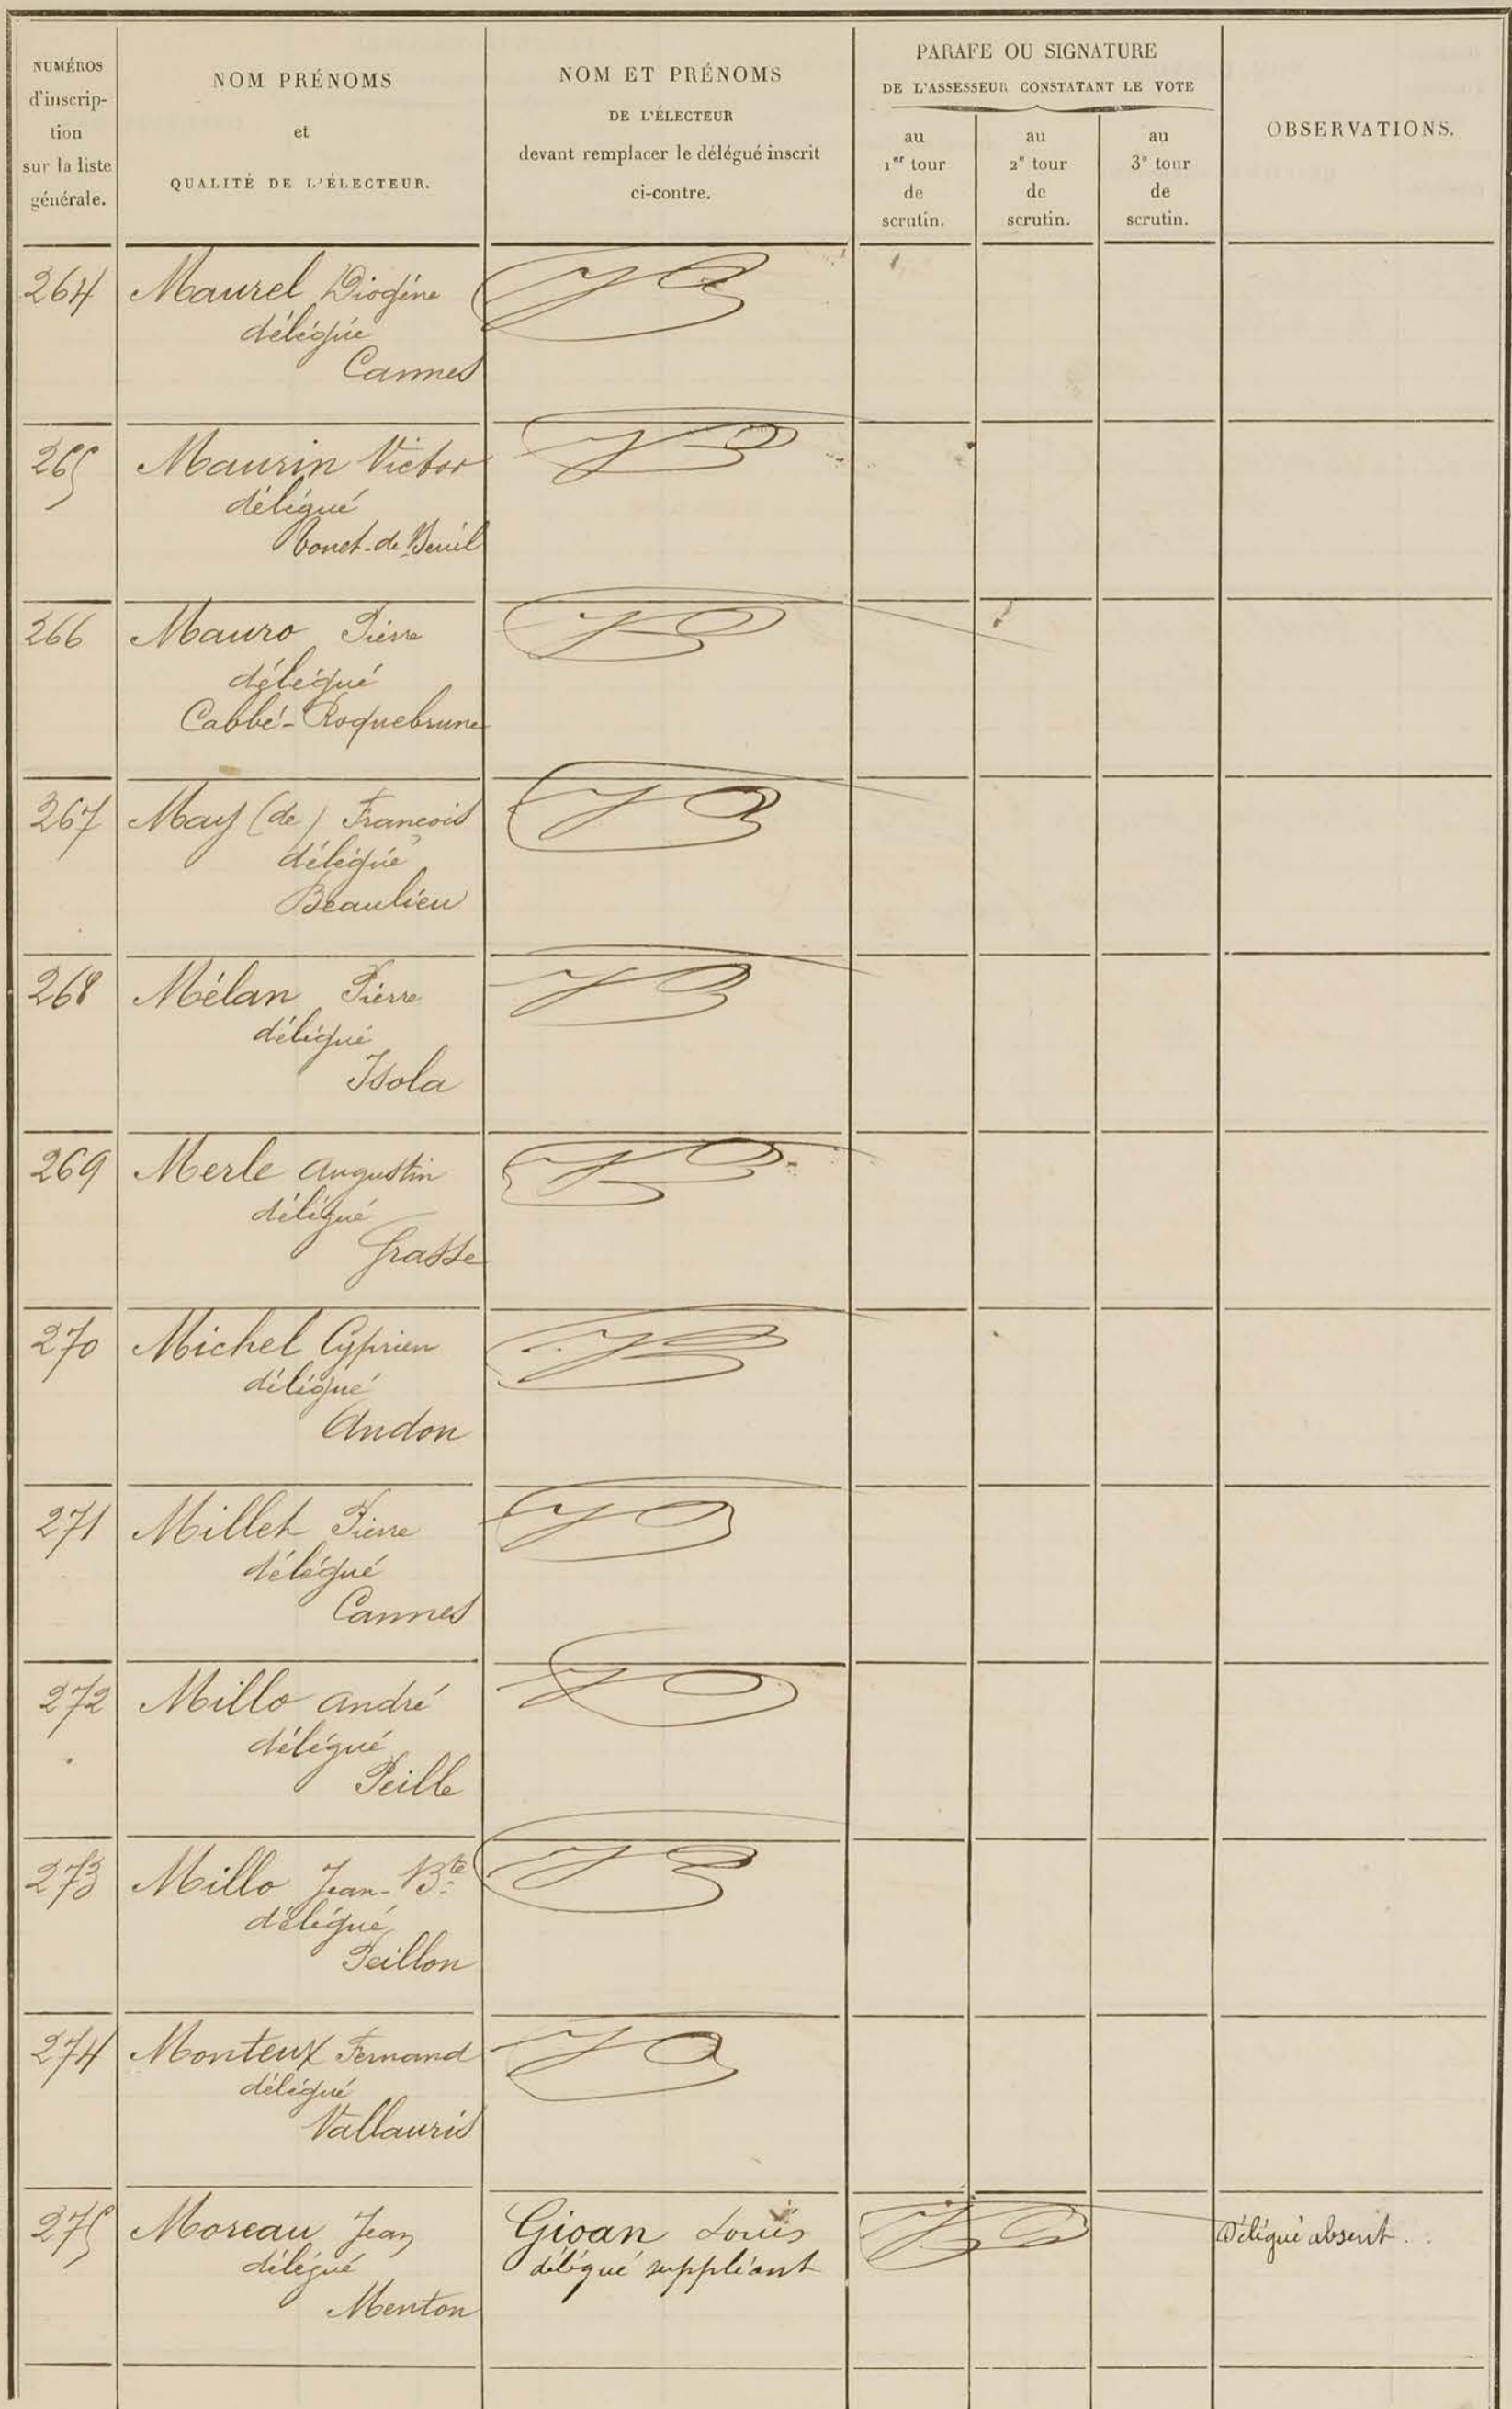 NUMÉROS
d'inscrip-
tion
sur la liste
générale.
NOM PRÉNOMS
et
QUALITÉ DE L'ÉLECTEUR.
NOM ET PRÉNOMS
DE L'ÉLECTEUR
devant remplacer le délégué inscrit
ci-contre.
PARAFE OU SIGNATURE
DE L'ASSESSEUR CONSTATANT LE VOTE
au
1er tour
de
scrutin.
au
2e tour
de
scrutin.
au
3e tour
de
scrutin.
OBSERVATIONS.
264 Maurel Diogène
délégué
Cannes
265 Maurin Victor
délégué
Touet-de-Beuil
266 Mauro Pierre
délégué
Cabbé-Roquebrune
267 May (de) François
délégué
Beaulieu
268 Mélan Pierre
délégué
Isola
269 Merle Augustin
délégué
Grasse
270 Michel Cyprien
délégué
Andon
271 Millet Pierre
délégué
Cannes
272 Millo André
délégué
Peille
273 Millo Jean-Bte
délégué
Peillon
274 Monteux Fernand
délégué
Vallauris
275 Moreau Jean Gioan Louis Délégué absent.
délégué délégué suppléant
Menton